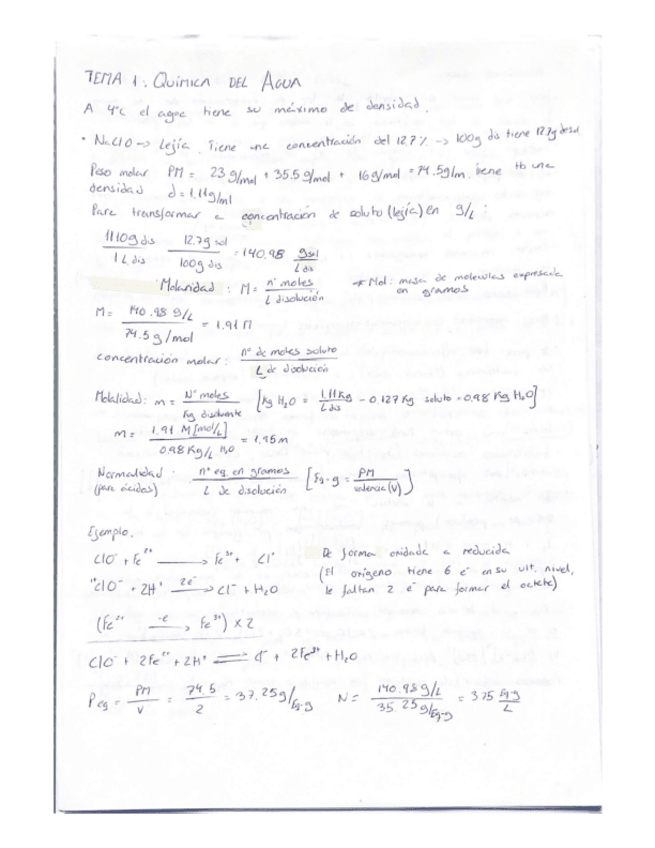 TEMA 1: QUÍMICA DEL AGUA
A 4°C el agua tiene su máximo de densidad.
• NaClO -> Lejía. Tiene una concentración del 12,7% -> 100g dis tiene 12.7g de sol
Peso molar PM = 23 g/mol + 35.5 g/mol + 16 g/mol = 74.5 g/m. tiene tb una
densidad d = 1,11 g/ml
Para transformar a concentración de soluto (lejía) en g/L :
1110g dis / 1 L dis 12.7g sol / 100g dis = 140.98 g sol / L dis
Molaridad : M = nº moles / L disolución * Mol: masa de moleculas expresada
en gramos
M = 140.98 g/L / 74.5 g/mol = 1.91 M
concentración molar : nº de moles soluto / L de disolución
Molalidad: m = Nº moles / Kg disolvente [Kg H2O = 1,11 Kg / L dis - 0,127 Kg soluto = 0,98 Kg H2O]
m = 1.91 M [mol/L] / 0.98 Kg/L H2O = 1.95 m
Normalidad : nº eq. en gramos / L de disolución [Eq-g = PM / valencia (v)]
(para ácidos)
Ejemplo.
ClO⁻ + Fe²⁺ -> Fe³⁺ Cl⁻ De forma oxidada a reducida
"ClO⁻ + 2H⁺ 2e⁻ -> Cl⁻ + H2O (El oxígeno tiene 6 e⁻ en su ult. nivel,
le faltan 2 e⁻ para formar el octete)
(Fe²⁺ -e -> Fe³⁺) x 2
ClO⁻ + 2Fe²⁺ + 2H⁺ ⇌ Cl⁻ + 2Fe³⁺ + H2O
Peq = PM / V = 74.5 / 2 = 37.25 g/Eq-g N = 140.98 g/L / 35.25 g/Eq-g = 3.75 Eq-g / L